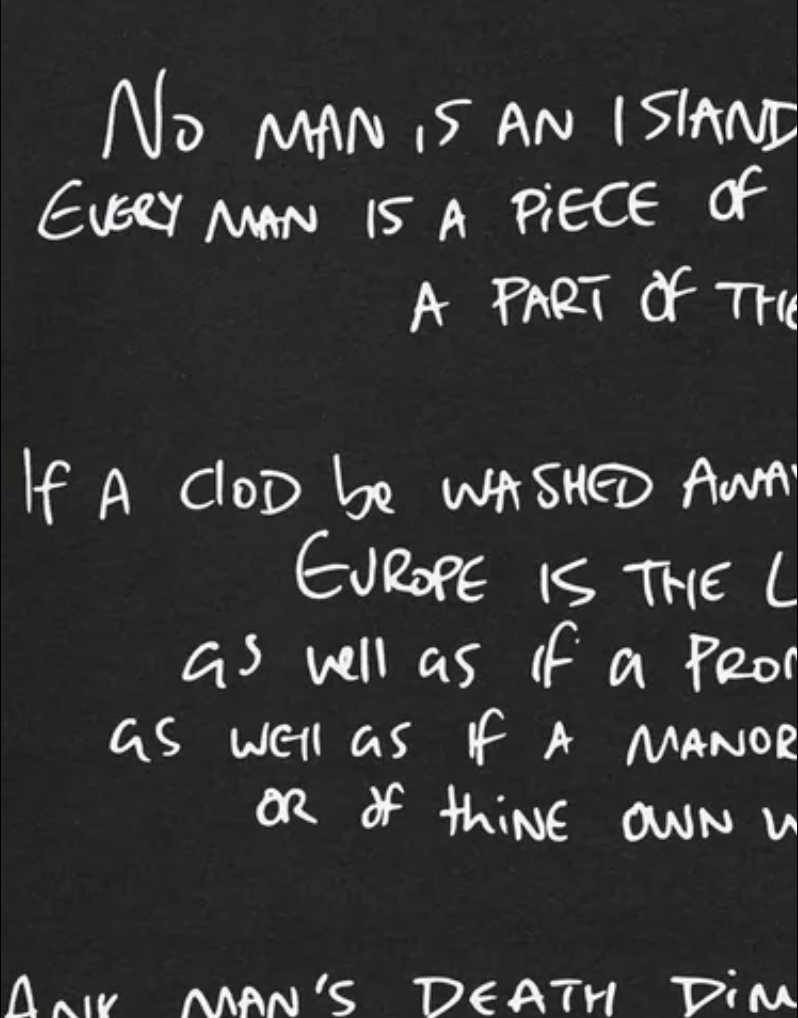 No MAN is AN ISlAND
EVERY MAN IS A PiECE OF
A PART OF THE
If A ClOD be WASHED AWAY
EUROPE IS THE L
as well as if a PROM
as well as If A MANOR
OR of thiNE OWN W
ANY MAN'S DEATH DiM